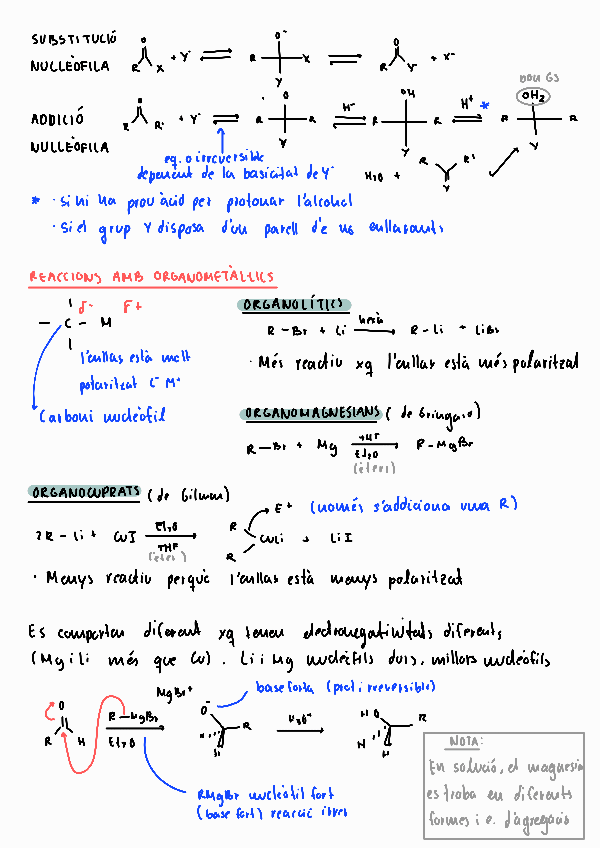 SUBSTITUCIÓ
NUCLEÒFILA
O R X + Y⁻ O⁻ R X Y O R Y + X⁻
BON GS
ADDICIÓ
NUCLEÒFILA
O R R' + Y⁻ O R R Y H⁻ OH R R Y H⁺ * OH2 R R Y
eq. o irreversible
depenent de la basicitat de Y⁻
H2O + R R' Y
* · si hi ha prou àcid per protonar l'alcohol
· Si el grup Y disposa d'un parell d'e⁻ no enllaçants
REACCIONS AMB ORGANOMETÀL·LICS
δ⁻ δ+
— C — M
l'enllaç està molt
polaritzat C⁻ M⁺
Carboni nucleòfil
ORGANOLÍTICS
R – Br + Li hexà R – Li + LiBr
· Més reactiu xq l'enllaç està més polaritzat
ORGANOMAGNESIANS (de Gringard)
R – Br + Mg THF Et2O R – MgBr
(èters)
ORGANOCUPRATS (de Gilman)
E+ (només s'addiciona una R)
2R – Li + CuI Et2O THF R R CuLi + LiI
(èter)
· Menys reactiu perquè l'enllaç està menys polaritzat
Es comporten diferent xq tenen electronegativitats diferents
(Mg i Li més que Cu). Li i Mg nucleòfils durs, millors nucleòfils
MgBr+
base forta (prot irreversible)
O R H R – MgBr Et2O O⁻ R H H3O⁺ HO R H
RMgBr nucleòfil fort
(base fort) reacció irrev
NOTA:
En solució, el magnesià
es troba en diferents
formes i e. d'agregació